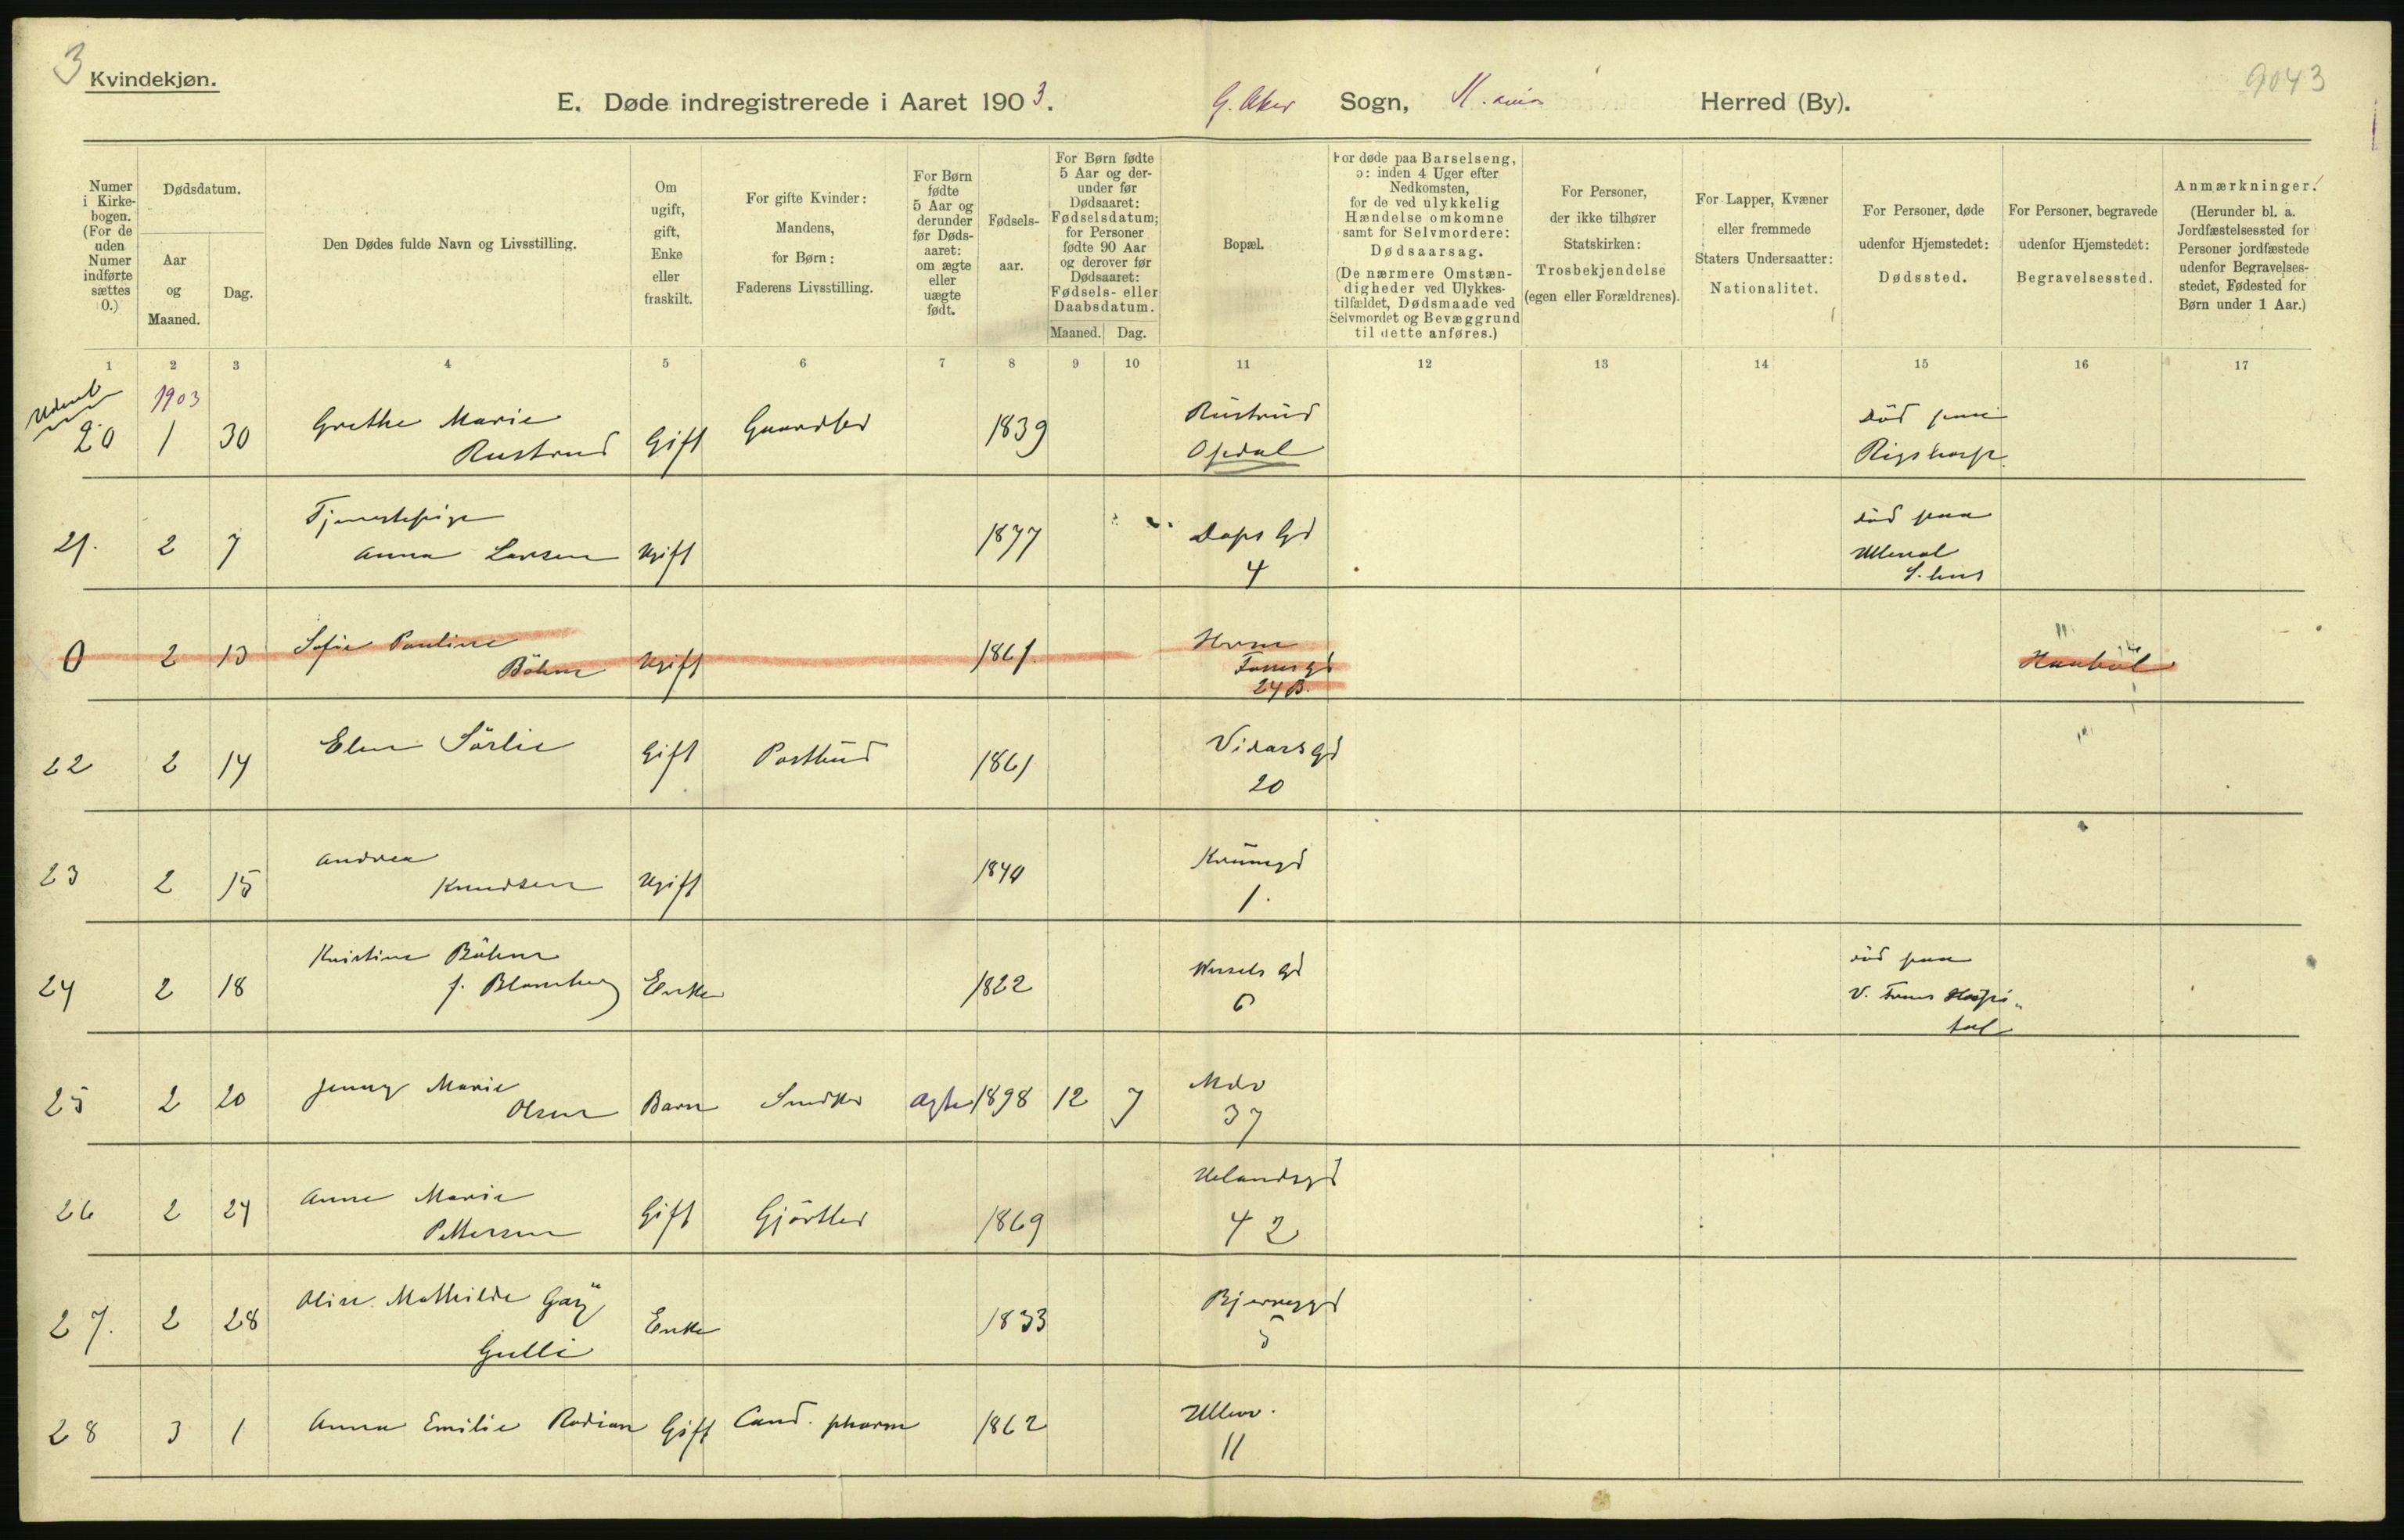 3
Kvindekjøn.
E. Døde indregistrerede i Aaret 1903.
G. Aker Sogn, Herred (By).
9043
Numer i Kirkebogen. (For de uden Numer indførte sættes 0.)
Dødsdatum.
Aar og Maaned.
Dag.
Den Dødes fulde Navn og Livsstilling.
Om ugift, gift, Enke eller fraskilt.
For gifte Kvinder: Mandens, for Børn: Faderens Livsstilling.
For Børn fødte 5 Aar og derunder før Dødsaaret: om ægte eller uægte født.
Fødselsaar.
For Børn fødte 5 Aar og derunder før Dødsaaret: Fødselsdatum; for Personer fødte 90 Aar og derover før Dødsaaret: Fødsels- eller Daabsdatum.
Maaned. Dag.
Bopæl.
For døde paa Barselseng, ɔ: inden 4 Uger efter Nedkomsten, for de ved ulykkelig Hændelse omkomne samt for Selvmordere: Dødsaarsag. (De nærmere Omstændigheder ved Ulykkestilfældet, Dødsmaade ved Selvmordet og Bevæggrund til dette anføres.)
For Personer, der ikke tilhører Statskirken: Trosbekjendelse (egen eller Forældrenes).
For Lapper, Kvæner eller fremmede Staters Undersaatter: Nationalitet.
For Personer, døde udenfor Hjemstedet: Dødssted.
For Personer, begravede udenfor Hjemstedet: Begravelsessted.
Anmærkninger. (Herunder bl. a. Jordfæstelsessted for Personer jordfæstede udenfor Begravelsesstedet, Fødested for Børn under 1 Aar.)
1 2 3 4 5 6 7 8 9 10 11 12 13 14 15 16 17
1903
20 1 30 Grethe Marie Rustrud Gift Gaardbr 1839 Rustrud Opdal død paa Rigshosp.
21. 2 7 Tjenestepige Anna Larsen Ugift 1877 Daps Gd 4 død paa Ullevol S. hus
0 2 13 Sofie Pauline Böhm Ugift 1861. Fossgd 24 B.
22 2 14 Elen Sörlie Gift Postbud 1861 Vidars Gd 20
23 2 15 Andrea Knudsen Ugift 1840 1.
24 2 18 Kristine Böhm f. Enke 1822 Wessels Gd 6 død paa V. Hospital
25 2 20 Jenny Marie Olsen Barn Snedker ægte 1898 12 7 37
26 2 24 Anne Marie Pettersen Gift Gjörtler 1869 Uelandsgd 42
27. 2 28 Oline Mathilde Gulli Enke 1833 Bjerregd 5
28 3 1 Anna Emilie Rodian Gift Cand. pharm 1862 Ullev. 11